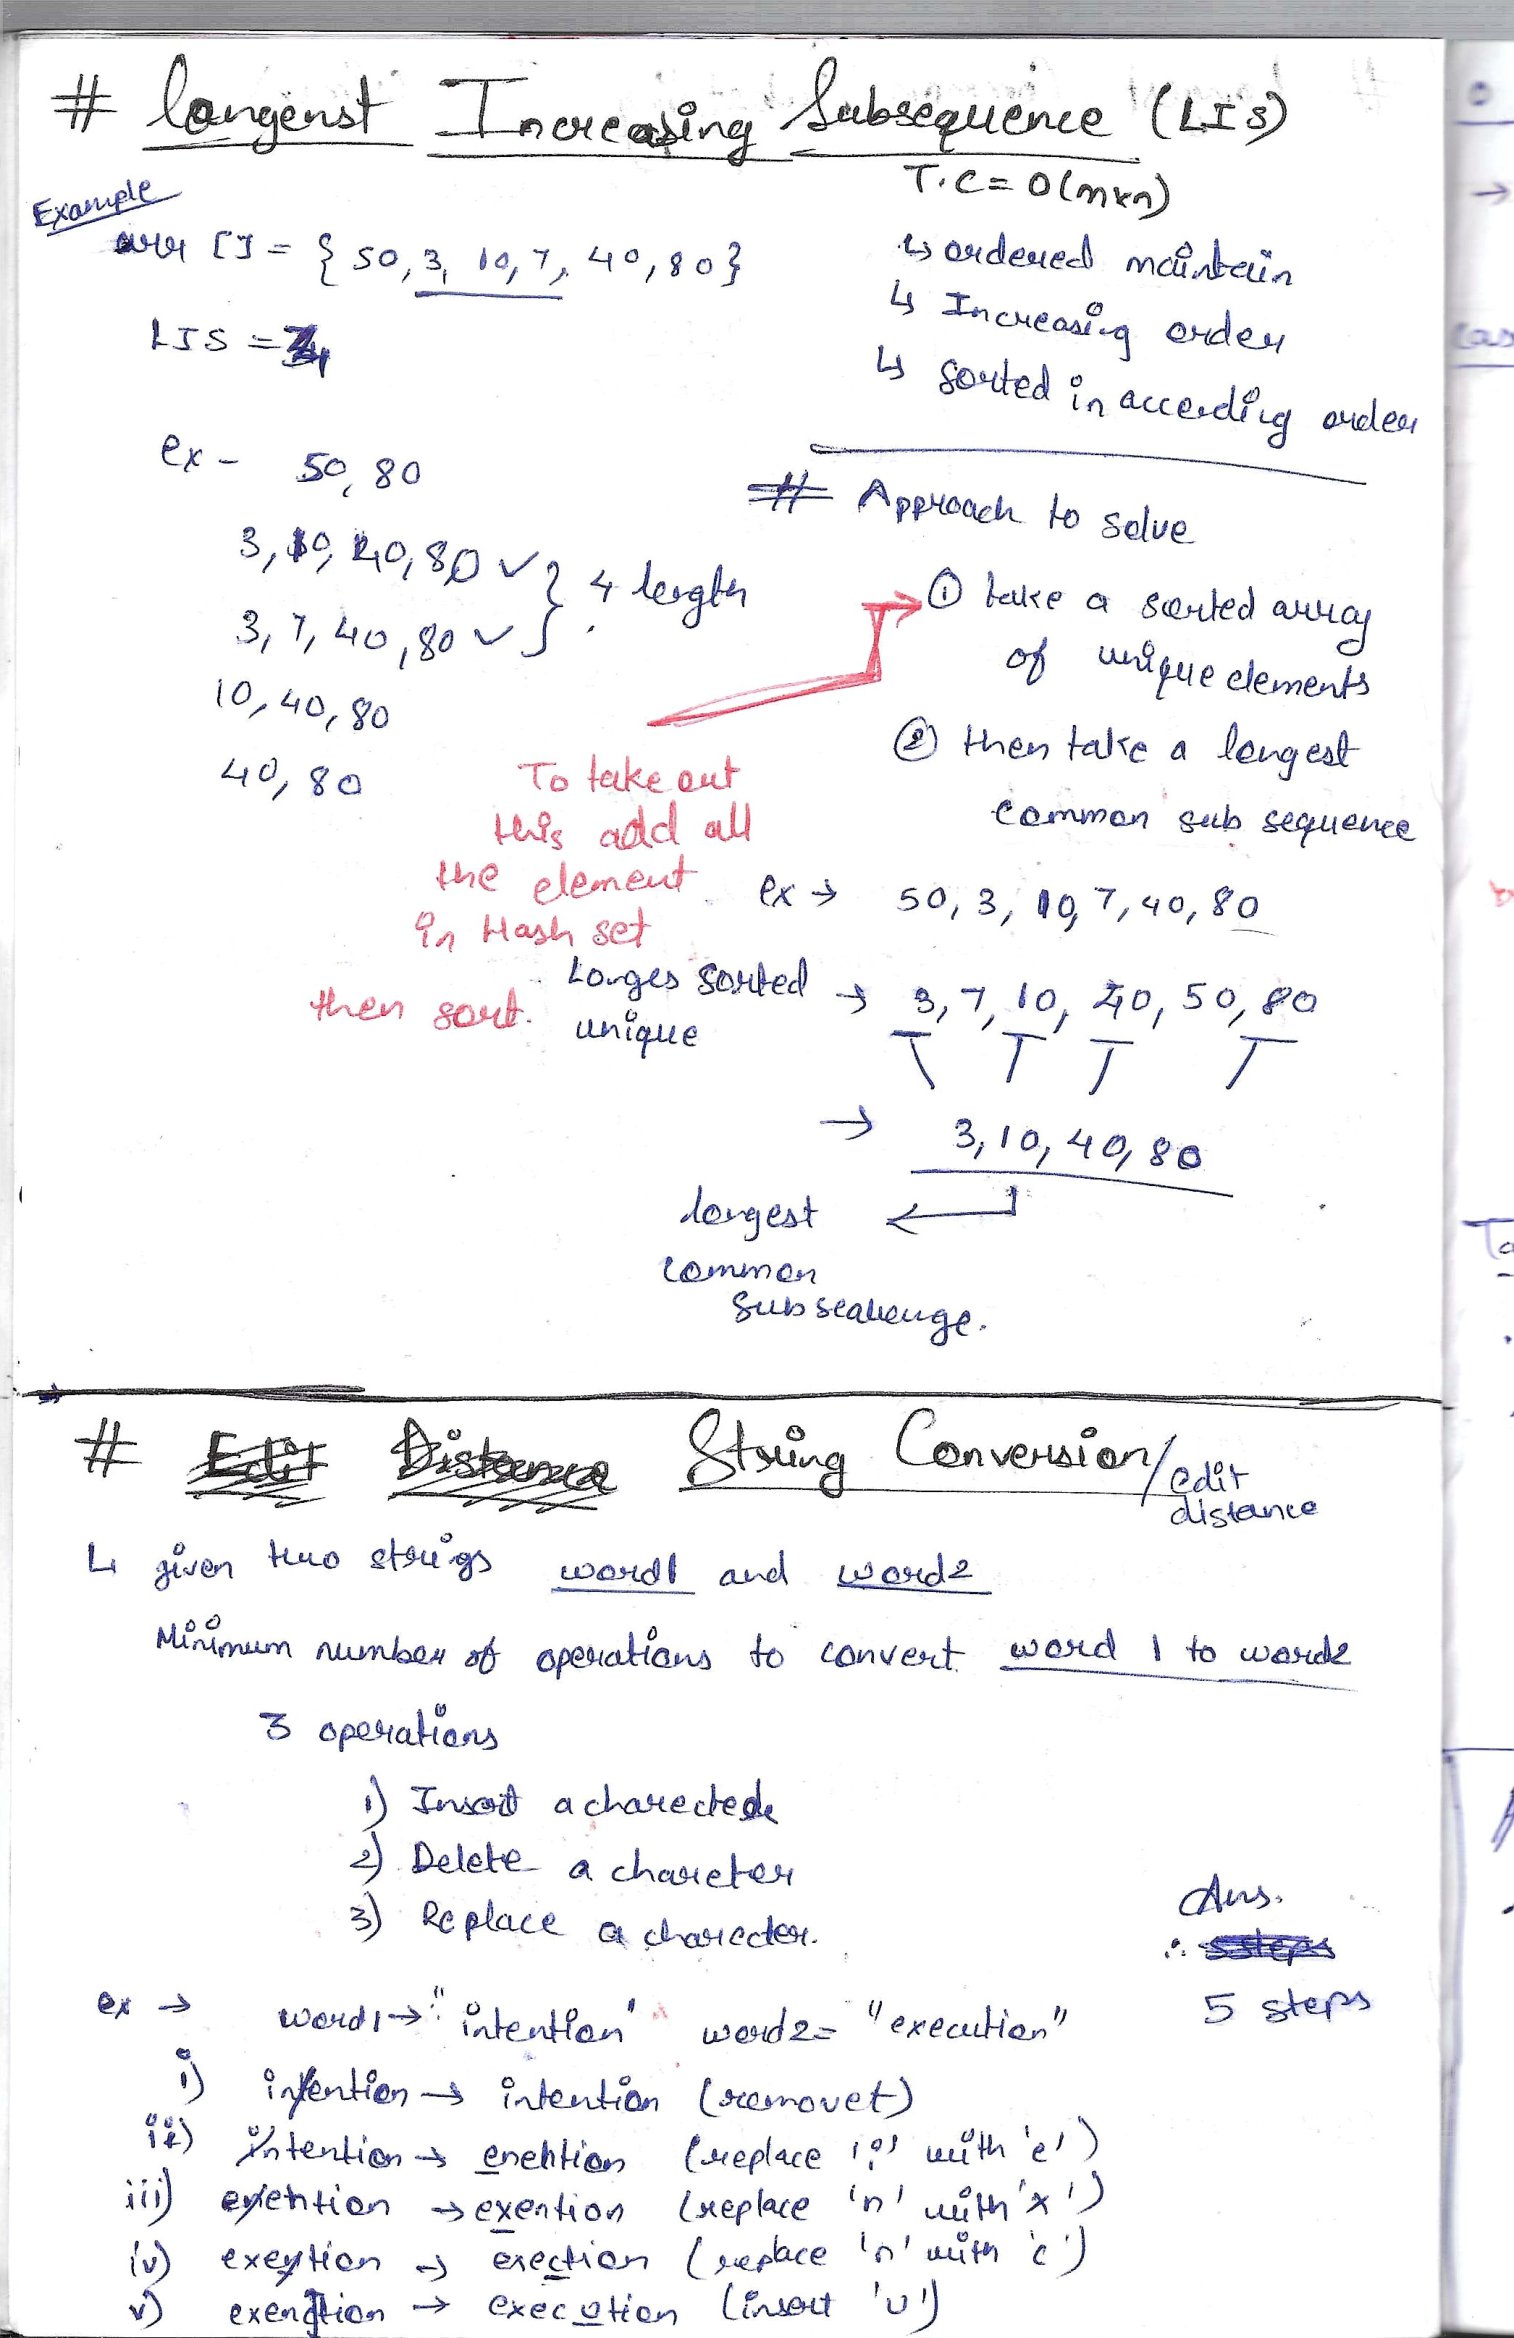 # Longenst Increasing Subsequence (LIS)
T.C = O(m×n)
Example
arr [] = { 50, 3, 10, 7, 40, 80}
LIS = 4
↳ ordered maintain
↳ Increasing order
↳ sorted in accerding order
ex - 50, 80
3, 10, 40, 80 ✓
3, 7, 40, 80 ✓
} 4 length
10, 40, 80
40, 80
# Approach to solve
① take a sorted array
of unique elements
② then take a longest
common sub sequence
To take out
this add all
the element
in Hash set
then sort.
ex → 50, 3, 10, 7, 40, 80
Longes sorted → 3, 7, 10, 40, 50, 80
unique
→ 3, 10, 40, 80
longest
common
# Edit Distance String Conversion/
edit
distance
↳ given two strings word1 and word2
Minimum number of operations to convert word 1 to word2
3 operations
1) Insert a
2) Delete a charcter
3) Replace a charecter.
Ans.
∴ 5 steps
5 steps
ex → word1 → "intention" word2 = "execution"
i) intention → intention (remove t)
ii) intention → (replace 'i' with 'e')
iii) → exention (replace 'n' with 'x')
iv) → exection (replace 'n' with 'c')
v) → execution (insert 'u')